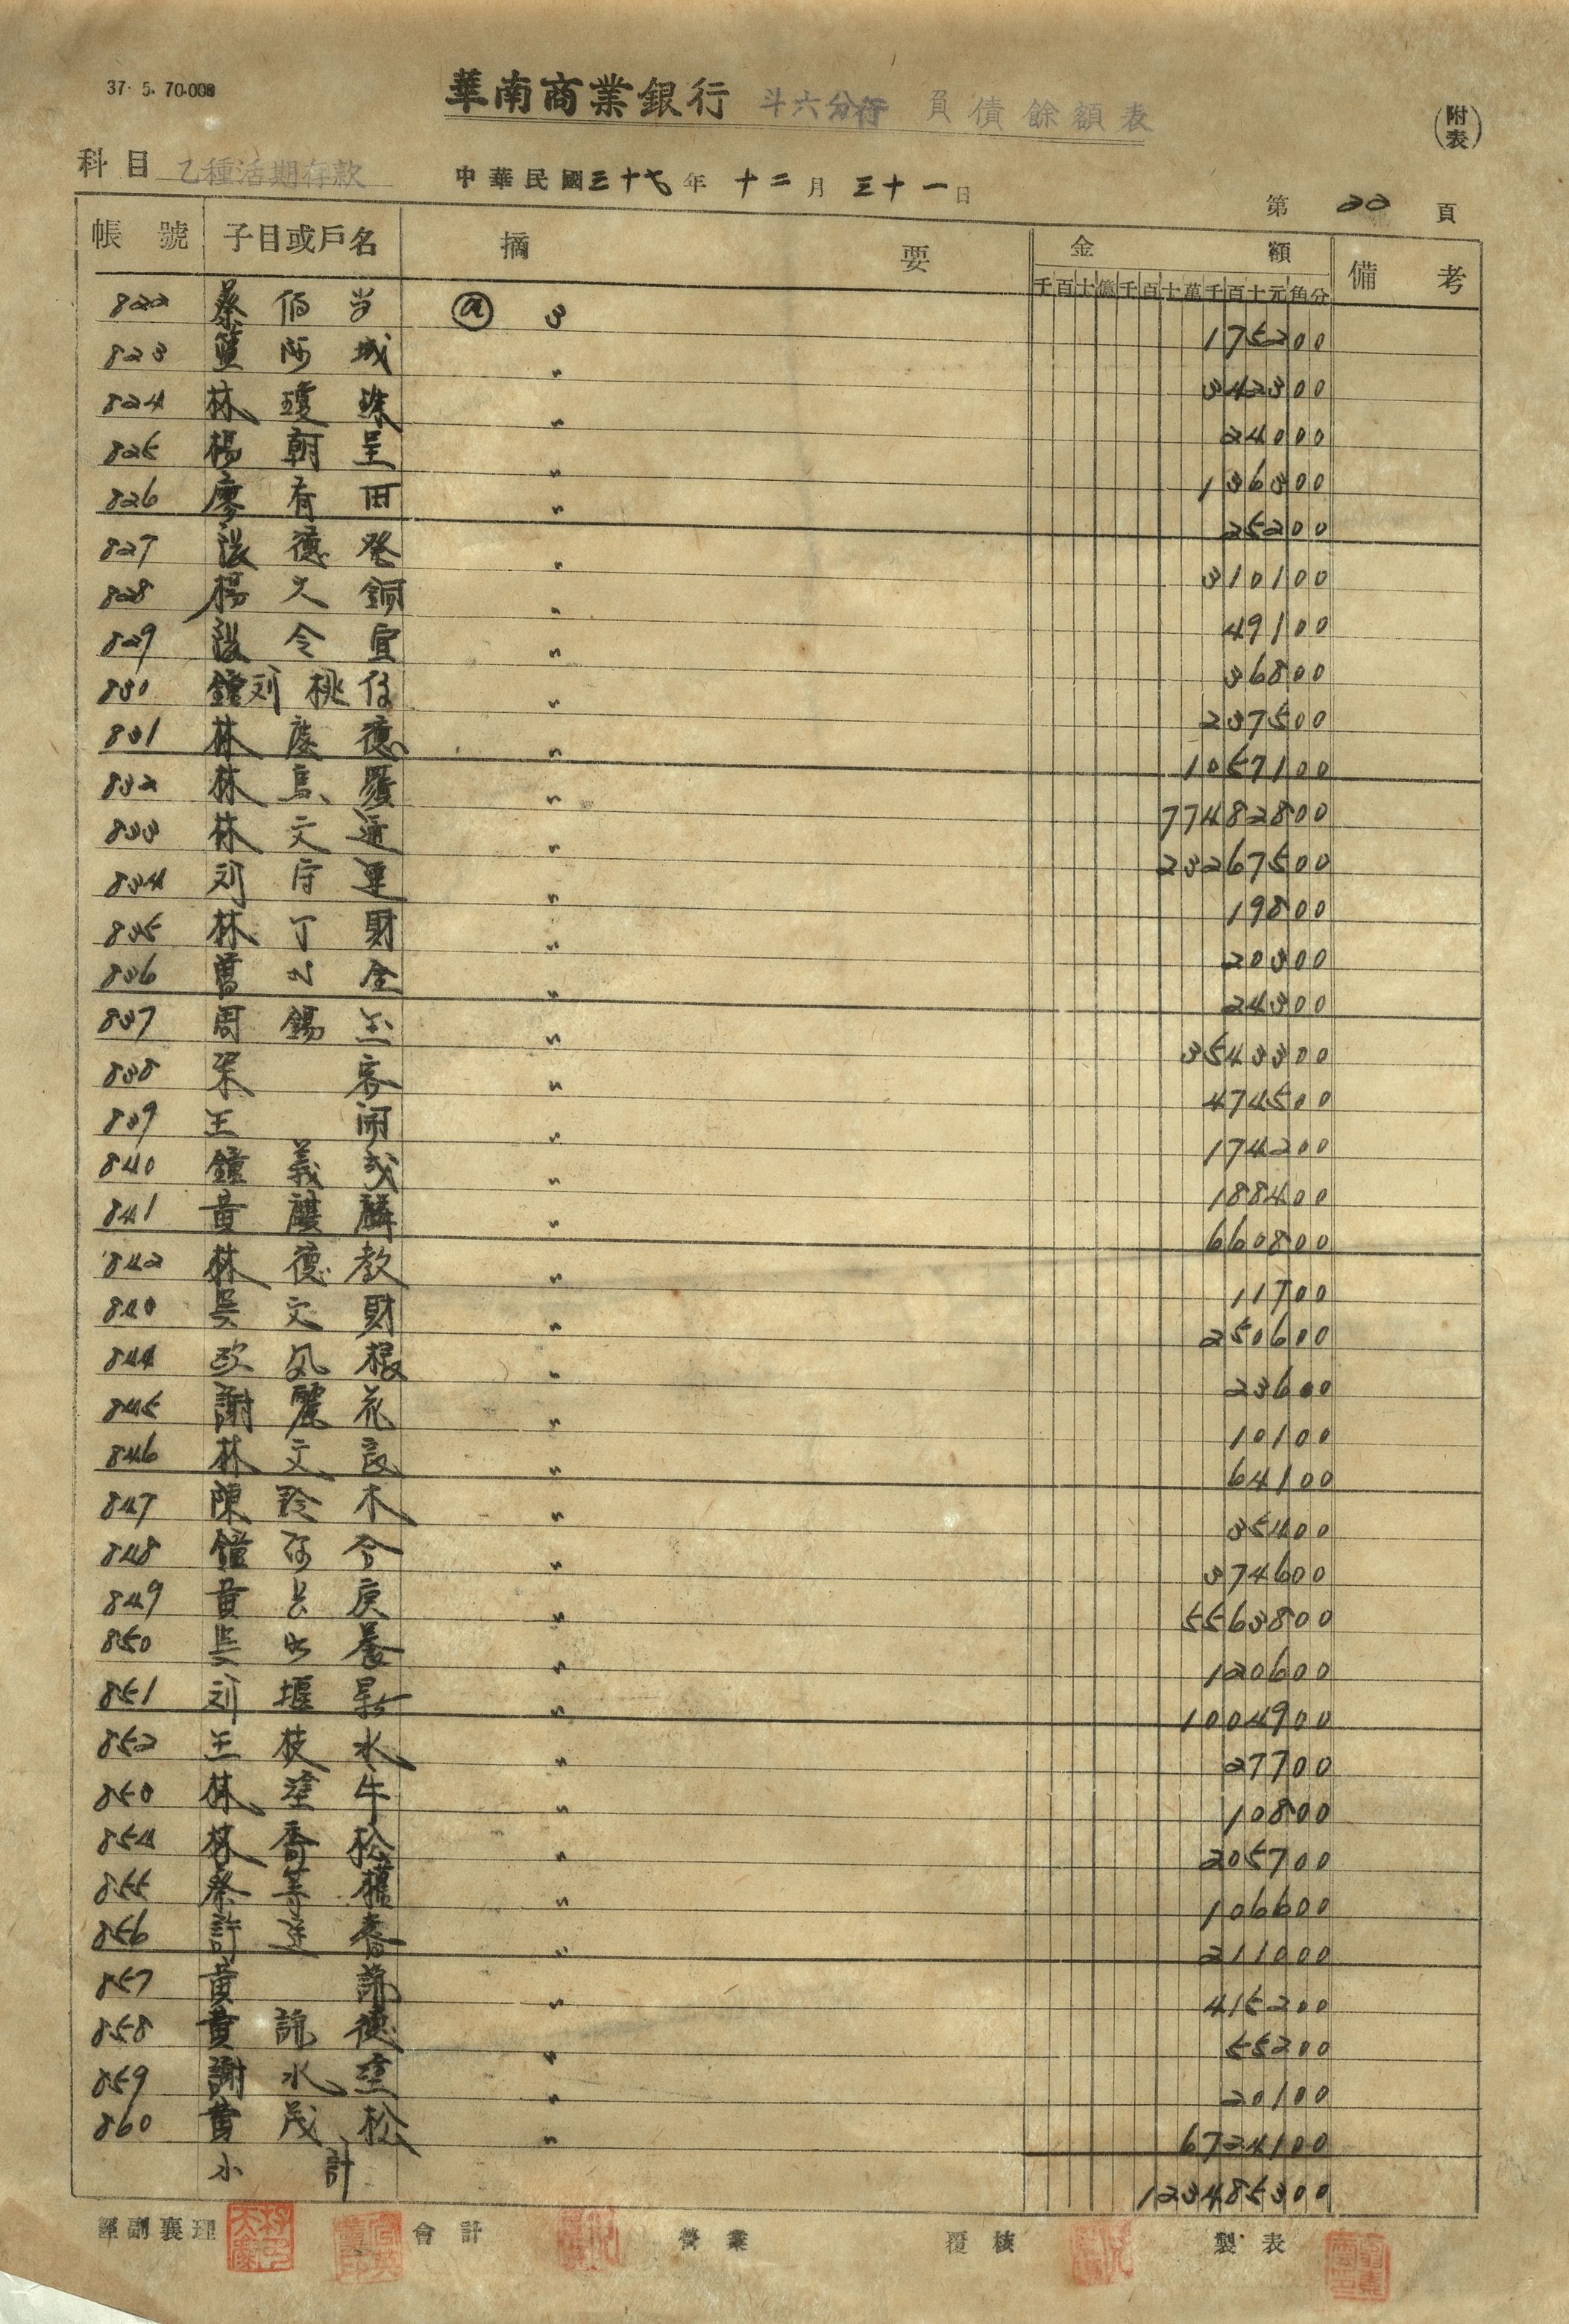 37. 5. 70.000
華南商業銀行 斗六分行 負債餘額表
(附表)
科目 乙種活期存款 中華民國三十七年 十二月 三十一日
第 22 頁
帳號 子目或戶名 摘要 金額 備考
千百十億千百十萬千百十元角分
822 蔡佰当 ⓐ 3 175200
823 阿城 〃 342300
824 林瓊珠 〃 24000
825 楊朝呈 〃 136300
826 廖有田 〃 25200
827 張德癸 〃 310100
828 楊火銅 〃 49100
829 張令宜 〃 36800
830 鐘刘桃仔 〃 237500
831 林慶德 〃 1057100
832 林烏 〃 77482800
833 林文通 〃 23267500
834 刘運 〃 19800
835 林丁財 〃 20300
836 曾水金 〃 24300
837 周錫玉 〃 3543300
838 〃 474500
839 王鬧 〃 174200
840 鐘義成 〃 188400
841 黃麒麟 〃 660800
842 林德教 〃 11700
843 吳定財 〃 250600
844 欧気根 〃 23600
845 謝麗花 〃 10100
846 林文良 〃 64100
847 陳羚木 〃 35400
848 鐘阿今 〃 374600
849 黃長庚 〃 5563800
850 吳 〃 120600
851 刘堰 〃 1004900
852 王枝水 〃 27700
853 林塗牛 〃 10800
854 林喬松 〃 205700
855 蔡等權 〃 106600
856 許连春 〃 211000
857 黃 〃 415200
858 黃德 〃 55200
859 謝水塗 〃 20100
860 黃茂松 〃 6724100
小計 123485300
經副襄理 會計 營業 覆核 製表